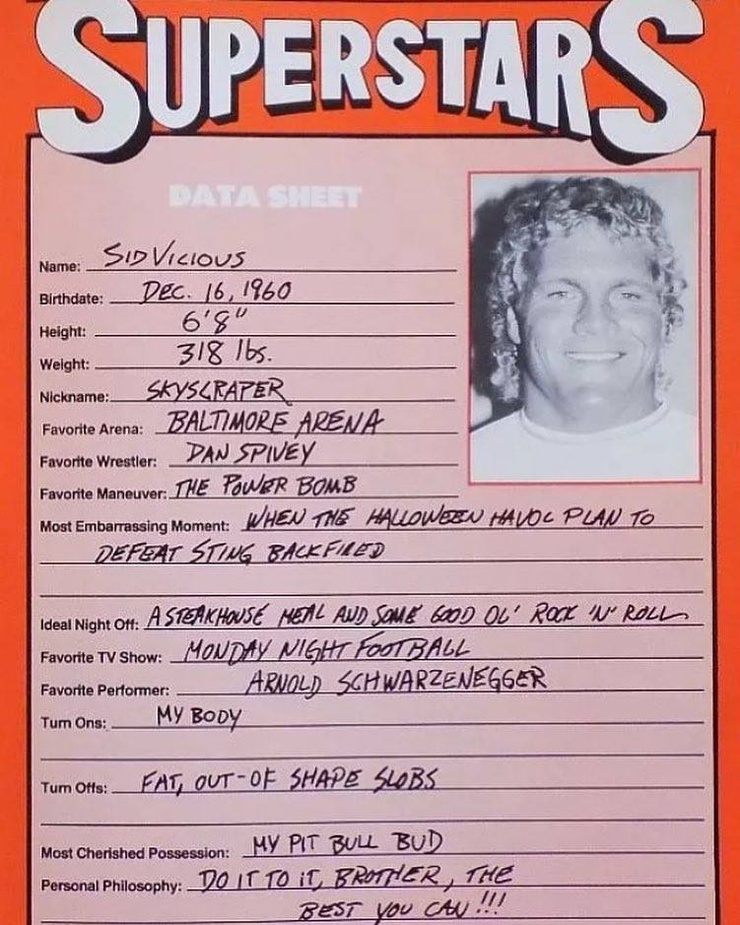 SUPERSTARS
DATA SHEET
Name: SID VICIOUS
Birthdate: DEC. 16, 1960
Height: 6'8"
Weight: 318 lbs.
Nickname: SKYSCRAPER
Favorite Arena: BALTIMORE ARENA
Favorite Wrestler: DAN SPIVEY
Favorite Maneuver: THE POWER BOMB
Most Embarrassing Moment: WHEN THE HALLOWEEN HAVOC PLAN TO
DEFEAT STING BACKFIRED
Ideal Night Off: A STEAKHOUSE MEAL AND SOME GOOD OL' ROCK 'N' ROLL
Favorite TV Show: MONDAY NIGHT FOOTBALL
Favorite Performer: ARNOLD SCHWARZENEGGER
Turn Ons: MY BODY
Turn Offs: FAT, OUT-OF SHAPE SLOBS
Most Cherished Possession: MY PIT BULL BUD
Personal Philosophy: DO IT TO IT, BROTHER, THE
BEST YOU CAN!!!